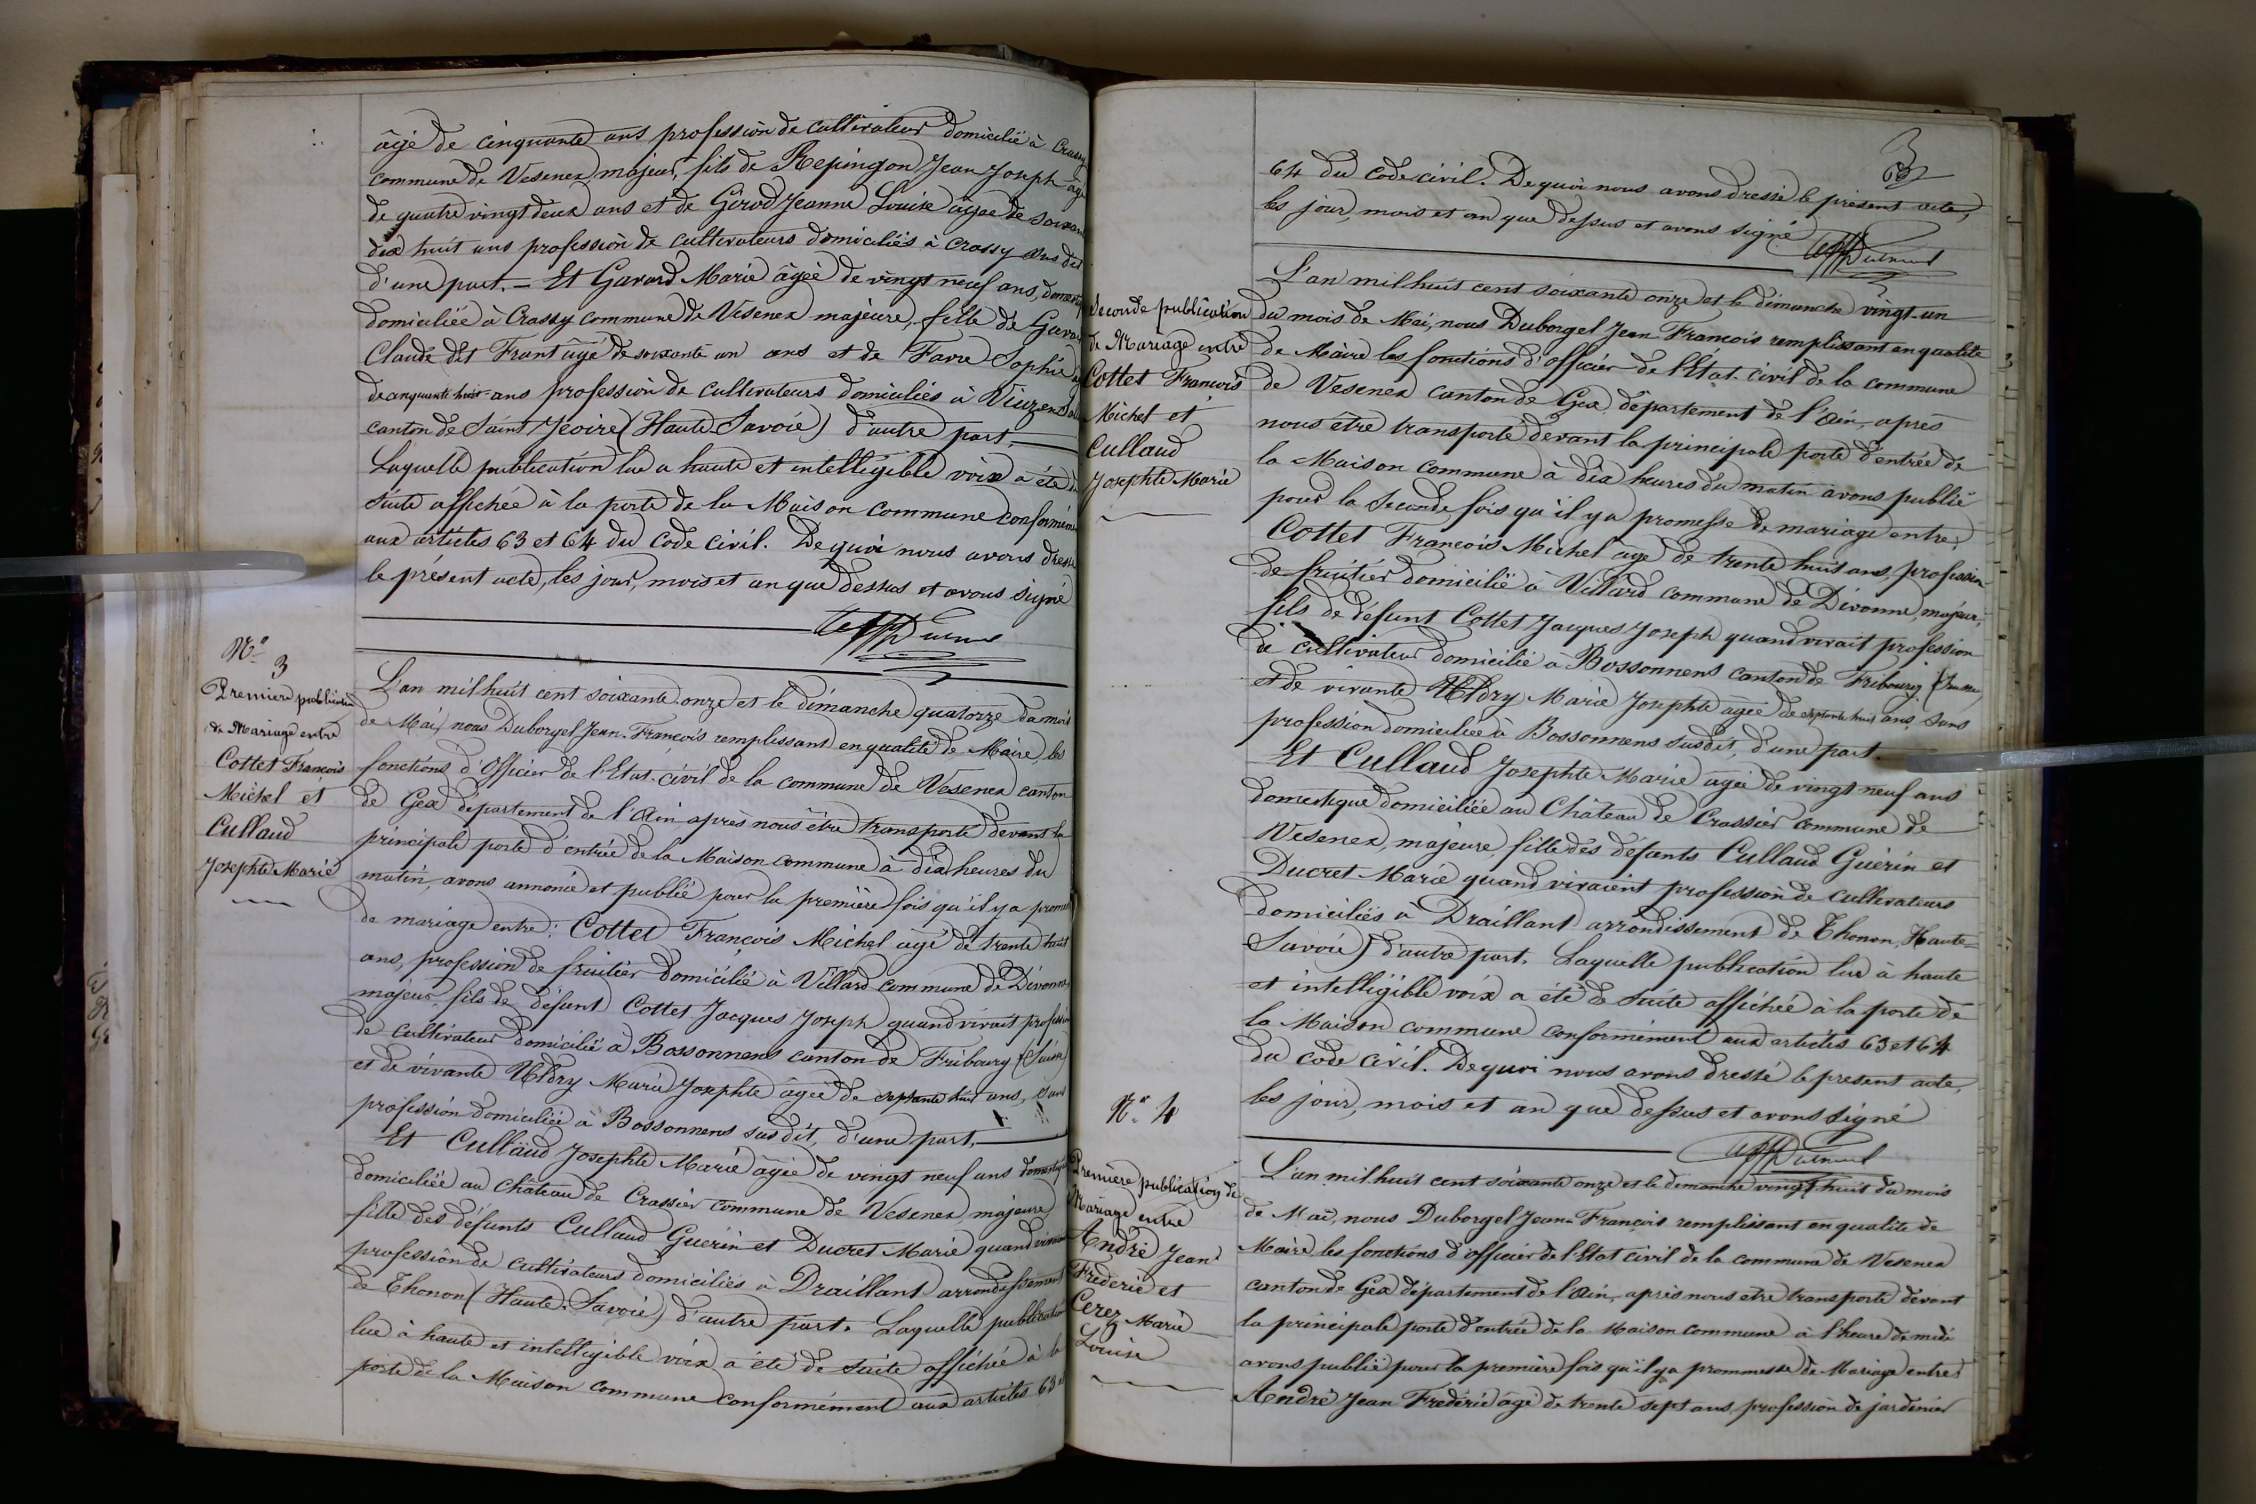 âgé de cinquante ans profession de cultivateur domicilié à Crassy
commune de Vesenex, majeur, fils de Repingon Jean Joseph âgé
de quatre vingt deux ans et de Girod Jeanne Louise âgée de soixante
dix huit ans profession de cultivateurs domiciliés à Crassy sus dit
d'une part. — Et Gavard Marie âgée de vingt neuf ans,
domiciliée à Crassy commune de Vesenex majeure, fille de Gavard
Claude dit Frant âgé de soixante un ans et de Favre Sophie
de cinquante huit ans profession de cultivateurs domiciliés à
canton de Saint Jeoire (Haute Savoie) d'autre part.
Laquelle publication lue a haute et intelligible voix a été de
suite affichée à la porte de la Maison commune conformément
aux articles 63 et 64 du Code civil. De quoi nous avons dressé
le présent acte, les jour, mois et an que dessus et avons signé
N° 3
Premier publication
de Mariage entre
Cottet François
Michel et
Cullaud
Josephte Marie
L'an mil huit cent soixante onze et le dimanche quatorze du mois
de Mai, nous Duborgel Jean-François remplissant en qualité de Maire les
fonctions d'Officier de l'Etat-civil de la commune de Vesenex canton
de Gex département de l'Ain après nous être transporté devant la
principale porte d'entrée de la Maison commune à dix heures du
matin, avons annoncé et publié pour la première fois qu'il y a promesse
de mariage entre: Cottet François Michel âgé de trente huit
ans, profession de fruitier domicilié à Villard commune de Divonne,
majeur, fils de défunt Cottet Jacques Joseph quand vivait profession
de cultivateur domicilié à Bossonnens canton de Fribourg (Suisse)
et de vivante Uldry Marie Josephte âgée de septante huit ans, sans
profession domiciliée à Bossonnens sus dit, d'une part.
Et Cullaud Josephte Marie âgée de vingt neuf ans domestique
domiciliée au château de Crassier commune de Vesenex, majeure
fille des défunts Cullaud Guérin et Ducret Marie quand vivaient
profession de cultivateurs domiciliés à Draillant arrondissement
de Thonon (Haute-Savoie) d'autre part. Laquelle publication
lue à haute et intelligible voix a été de suite affichée à la
porte de la Maison commune conformément aux articles 63 et
3
64 du Code civil. De quoi nous avons dressé le présent acte,
les jour, mois et an que dessus et avons signé
Seconde publication
de Mariage entre
Cottet François
Michel et
Cullaud
Josephte Marie
L'an mil huit cent soixante onze et le dimanche vingt-un
du mois de Mai, nous Duborgel Jean François remplissant en qualité
de Maire les fonctions d'Officier de l'Etat-civil de la commune
de Vesenex canton de Gex département de l'Ain, après
nous être transporté devant la principale porte d'entrée de
la Maison commune à dix heures du matin avons publié
pour la Seconde fois qu'il y a promesse de mariage entre:
Cottet François Michel âgé de trente huit ans, profession
de fruitier domicilié à Villard commune de Divonne, majeur,
fils de défunt Cottet Jacques Joseph quand vivait profession
de cultivateur domicilié à Bossonnens canton de Fribourg (Suisse)
et de vivante Uldry Marie Josephte âgée de septante huit ans, sans
profession domiciliée à Bossonnens susdit, d'une part.
Et Cullaud Josephte Marie âgée de vingt neuf ans
domestique domiciliée au Château de Crassier commune de
Vesenex, majeure, fille des défunts Cullaud Guérin et
Ducret Marie quand vivaient profession de cultivateurs
domiciliés à Draillant arrondissement de Thonon, Haute-
Savoie) d'autre part. Laquelle publication lue à haute
et intelligible voix a été de suite affichée à la porte de
la Maison commune conformément aux articles 63 et 64
du code civil. De quoi nous avons dressé le présent acte,
les jour, mois et an que dessus et avons signé
N° 4
Première publication de
Mariage entre
André Jean
Fréderic et
Cerez Marie
Louise
L'an mil huit cent soixante onze et le dimanche vingt-huit du mois
de Mai, nous Duborgel Jean-François remplissant en qualité de
Maire les fonctions d'officier de l'Etat civil de la commune de Vesenex
canton de Gex département de l'Ain, après nous être transporté devant
la principale porte d'entrée de la Maison commune à l'heure de midi
avons publié pour la première fois qu'il y a prommesse de Mariage entre
André Jean Frédéric âgé de trente sept ans, profession de jardinier